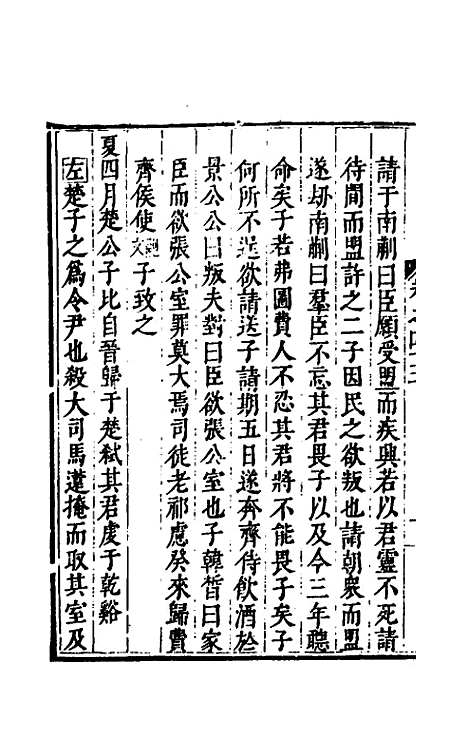 請于南蒯曰臣願受盟而疾興若以君靈不死請
待間而盟許之二子因民之欲叛也請朝衆而盟
遂刼南蒯曰羣臣不忘其君畏子以及今三年聽
命矣子若弗圖費人不忍其君將不能畏子矣子
何所不逞欲請送子請期五日遂奔齊侍飲酒於
景公公曰叛夫對曰臣欲張公室也子韓晳曰家
臣而欲張公室罪莫大焉司徒老祁慮癸來歸費
齊侯使鮑文子致之
夏四月楚公子比自晉歸于楚弑其君虔于乾谿
左楚子之為令尹也殺大司馬薳掩而取其室及